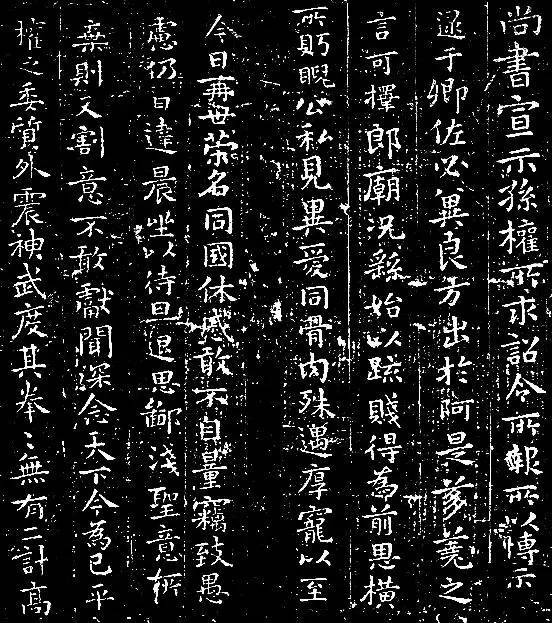 尚書宣示孫權所求詔令所報所以博示
逮于卿佐必異良方出於阿是芻蕘之
言可擇郎廟況繇始以疏賤得為前恩橫
所眄睨公私見異愛同骨肉殊遇厚寵以至
今日再世榮名同國休慼敢不自量竊致愚
慮仍日達晨坐以待旦退思鄙淺聖意所
棄則又割意不敢獻聞深念天下今為已平
權之委質外震神武度其拳〻無有二計高